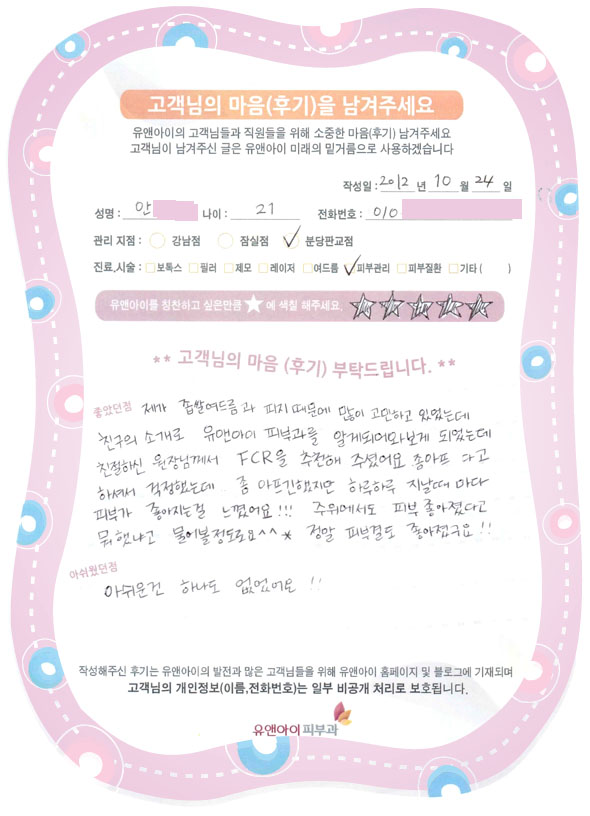 고객님의 마음(후기)을 남겨주세요
유앤아이의 고객님들과 직원들을 위해 소중한 마음(후기) 남겨주세요
고객님이 남겨주신 글은 유앤아이 미래의 밑거름으로 사용하겠습니다
작성일 : 2012 년 10 월 24 일
성명 : 안 나이 : 21 전화번호 : 010
관리 지점 : 강남점 잠실점 ✓ 분당판교점
진료,시술 : 보톡스 필러 제모 레이저 여드름 ✓ 피부관리 피부질환 기타 ( )
유앤아이를 칭찬하고 싶은만큼 ★ 에 색칠 해주세요. ★★★★★
** 고객님의 마음 (후기) 부탁드립니다. **
좋았던점 제가 좁쌀여드름과 피지 때문에 많이 고민하고 있었는데
친구의 소개로 유앤아이 피부과를 알게되어와보게 되었는데
친절하신 원장님께서 FCR을 추천해 주셨어요 좀아프다고
하셔서 걱정했는데 좀 아프긴했지만 하루하루 지날때마다
피부가 좋아지는걸 느꼈어요!!! 주위에서도 피부 좋아졌다고
뭐했냐고 물어볼정도로요^^* 정말 피부결도 좋아졌구요!!
아쉬웠던점
아쉬운건 하나도 없었어요 !!
작성해주신 후기는 유앤아이의 발전과 많은 고객님들을 위해 유앤아이 홈페이지 및 블로그에 기재되며
고객님의 개인정보(이름,전화번호)는 일부 비공개 처리로 보호됩니다.
유앤아이피부과